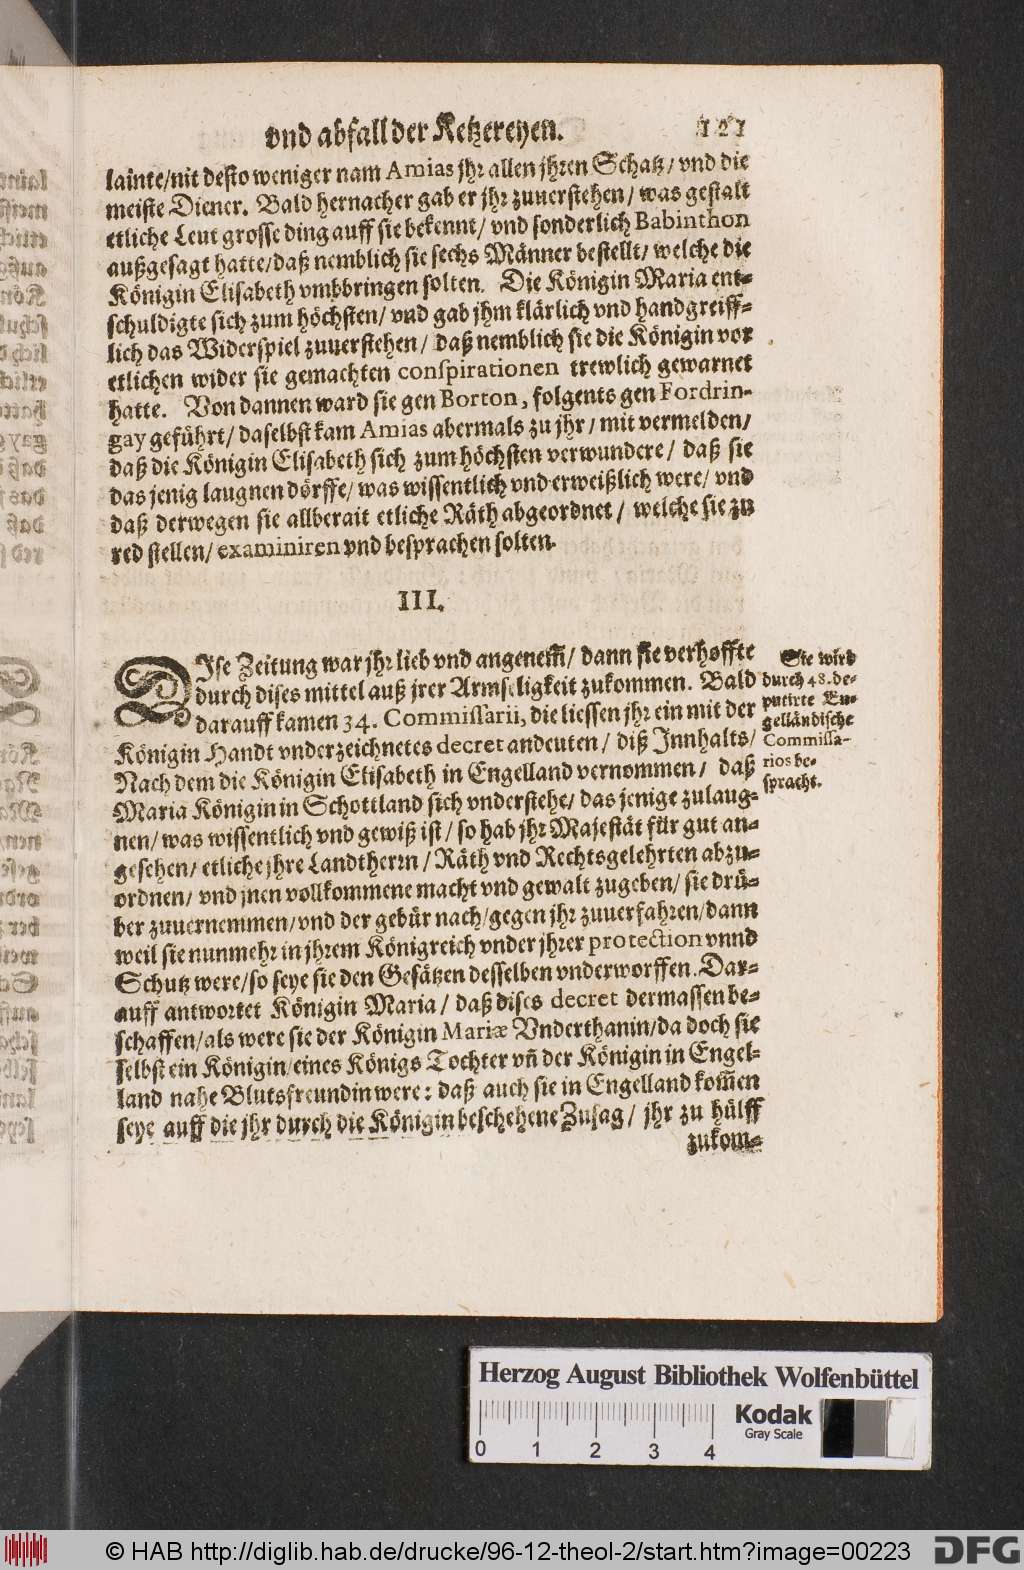 vnd abfall der Ketzereyen. 121
lainte/nit desto weniger nam Amias jhr allen jhren Schatz/ vnd die
meiste Diener. Bald hernacher gab er jhr zuuerstehen/ was gestalt
etliche Leut grosse ding auff sie bekennt/ vnd sonderlich Babinthon
außgesagt hatte/daß nemblich sie sechs Männer bestellt/ welche die
Königin Elisabeth vmbbringen solten. Die Königin Maria ent-
schuldigte sich zum höchsten/ vnd gab jhm klärlich vnd handgreiff-
lich das Widerspiel zuuerstehen/ daß nemblich sie die Königin vor
etlichen wider sie gemachten conspirationen trewlich gewarnet
hatte. Von dannen ward sie gen Borton, folgents gen Fordrin-
gay geführt/ daselbst kam Amias abermals zu jhr/ mit vermelden/
daß die Königin Elisabeth sich zum höchsten verwundere/ daß sie
das jenig laugnen dörffe/ was wissentlich vnd erweißlich were/ vnd
daß derwegen sie allberait etliche Räth abgeordnet/ welche sie zu
red stellen/ examiniren vnd besprachen solten.
III.
DIse Zeitung war jhr lieb vnd angenem̃/ dann sie verhoffte
durch dises mittel auß jrer Armseligkeit zukommen. Bald
darauff kamen 34. Commissarii, die liessen jhr ein mit der
Königin Handt vnderzeichnetes decret andeuten/ diß Innhalts/
Nach dem die Königin Elisabeth in Engelland vernommen/ daß
Maria Königin in Schottland sich vnderstehe/ das jenige zulaug-
nen/ was wissentlich vnd gewiß ist/ so hab jhr Majestät für gut an-
gesehen/ etliche jhre Landtherrn/ Räth vnd Rechtsgelehrten abzu-
ordnen/ vnd jnen vollkommene macht vnd gewalt zugeben/ sie drü-
ber zuuernemmen/vnd der gebür nach/gegen jhr zuuerfahren/dann
weil sie nunmehr in jhrem Königreich vnder jhrer protection vnnd
Schutz were/so seye sie den Gesätzen desselben vnderworffen. Dar-
auff antwortet Königin Maria/ daß dises decret dermassen be-
schaffen/als were sie der Königin Mariæ Vnderthanin/da doch sie
selbst ein Königin/eines Königs Tochter vñ der Königin in Engel-
land nahe Blutsfreundin were: daß auch sie in Engelland kom̃en
seye auff die jhr durch die Königin beschehene Zusag/ jhr zu hülff
zukom-
Sie wird
durch 48. de-
putirte En-
gelländische
Commissa-
rios be-
spracht.
Herzog August Bibliothek Wolfenbüttel
0 1 2 3 4
Kodak
Gray Scale
© HAB http://diglib.hab.de/drucke/96-12-theol-2/start.htm?image=00223
DFG